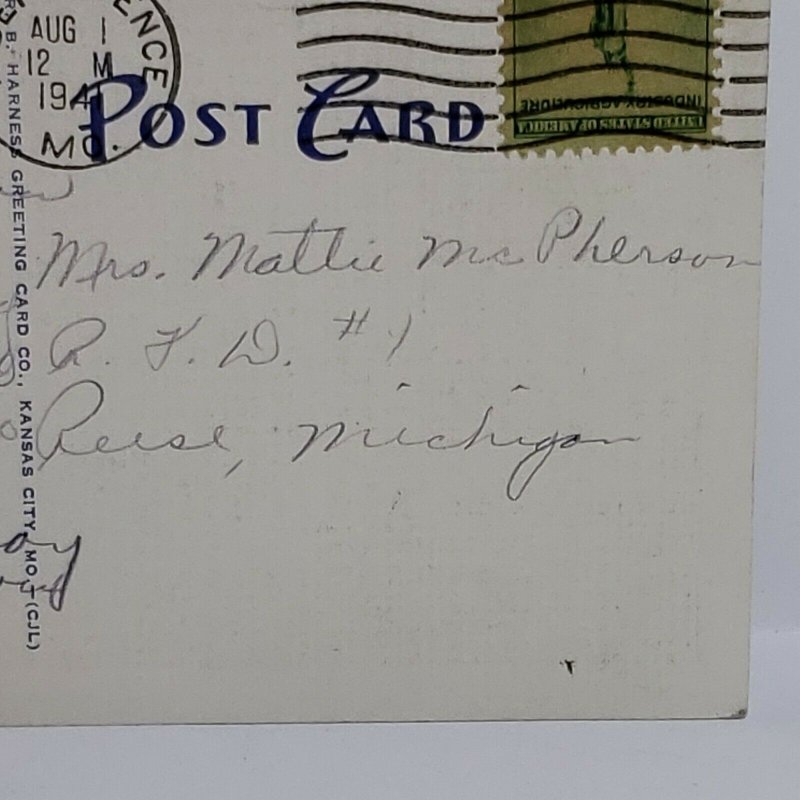 ENCE
AUG 1
12 M
194
MO.
POST CARD
INDUSTRY AGRICULTURE
UNITED STATES OF AMERICA
B. HARNESS GREETING CARD CO., KANSAS CITY, MO. (CJL)
Mrs. Mattie McPherson
R. F. D. #1
Reese, Michigan